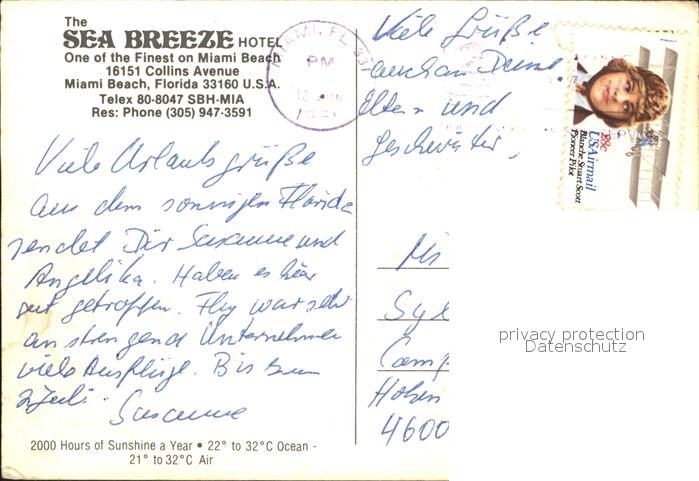 The
SEA BREEZE HOTEL
One of the Finest on Miami Beach
16151 Collins Avenue
Miami Beach, Florida 33160 U.S.A.
Telex 80-8047 SBH-MIA
Res: Phone (305) 947-3591
MIAMI, FL
PM
Viele Grüße
auch an Deine
Eltern und
Geschwister,
28c
USAirmail
Blanche Stuart Scott
Pioneer Pilot
Viele Urlaubsgrüße
aus dem sonnigen Florida
sendet Dir Susanne und
Angelika. Haben es hier
gut getroffen. Flug war sehr
anstrengend Unternehmen
viele Ausflüge. Bis zum
Juli.
Susanne
Ms
Camp
Hohen
4600
privacy protection
Datenschutz
2000 Hours of Sunshine a Year • 22° to 32°C Ocean -
21° to 32°C Air